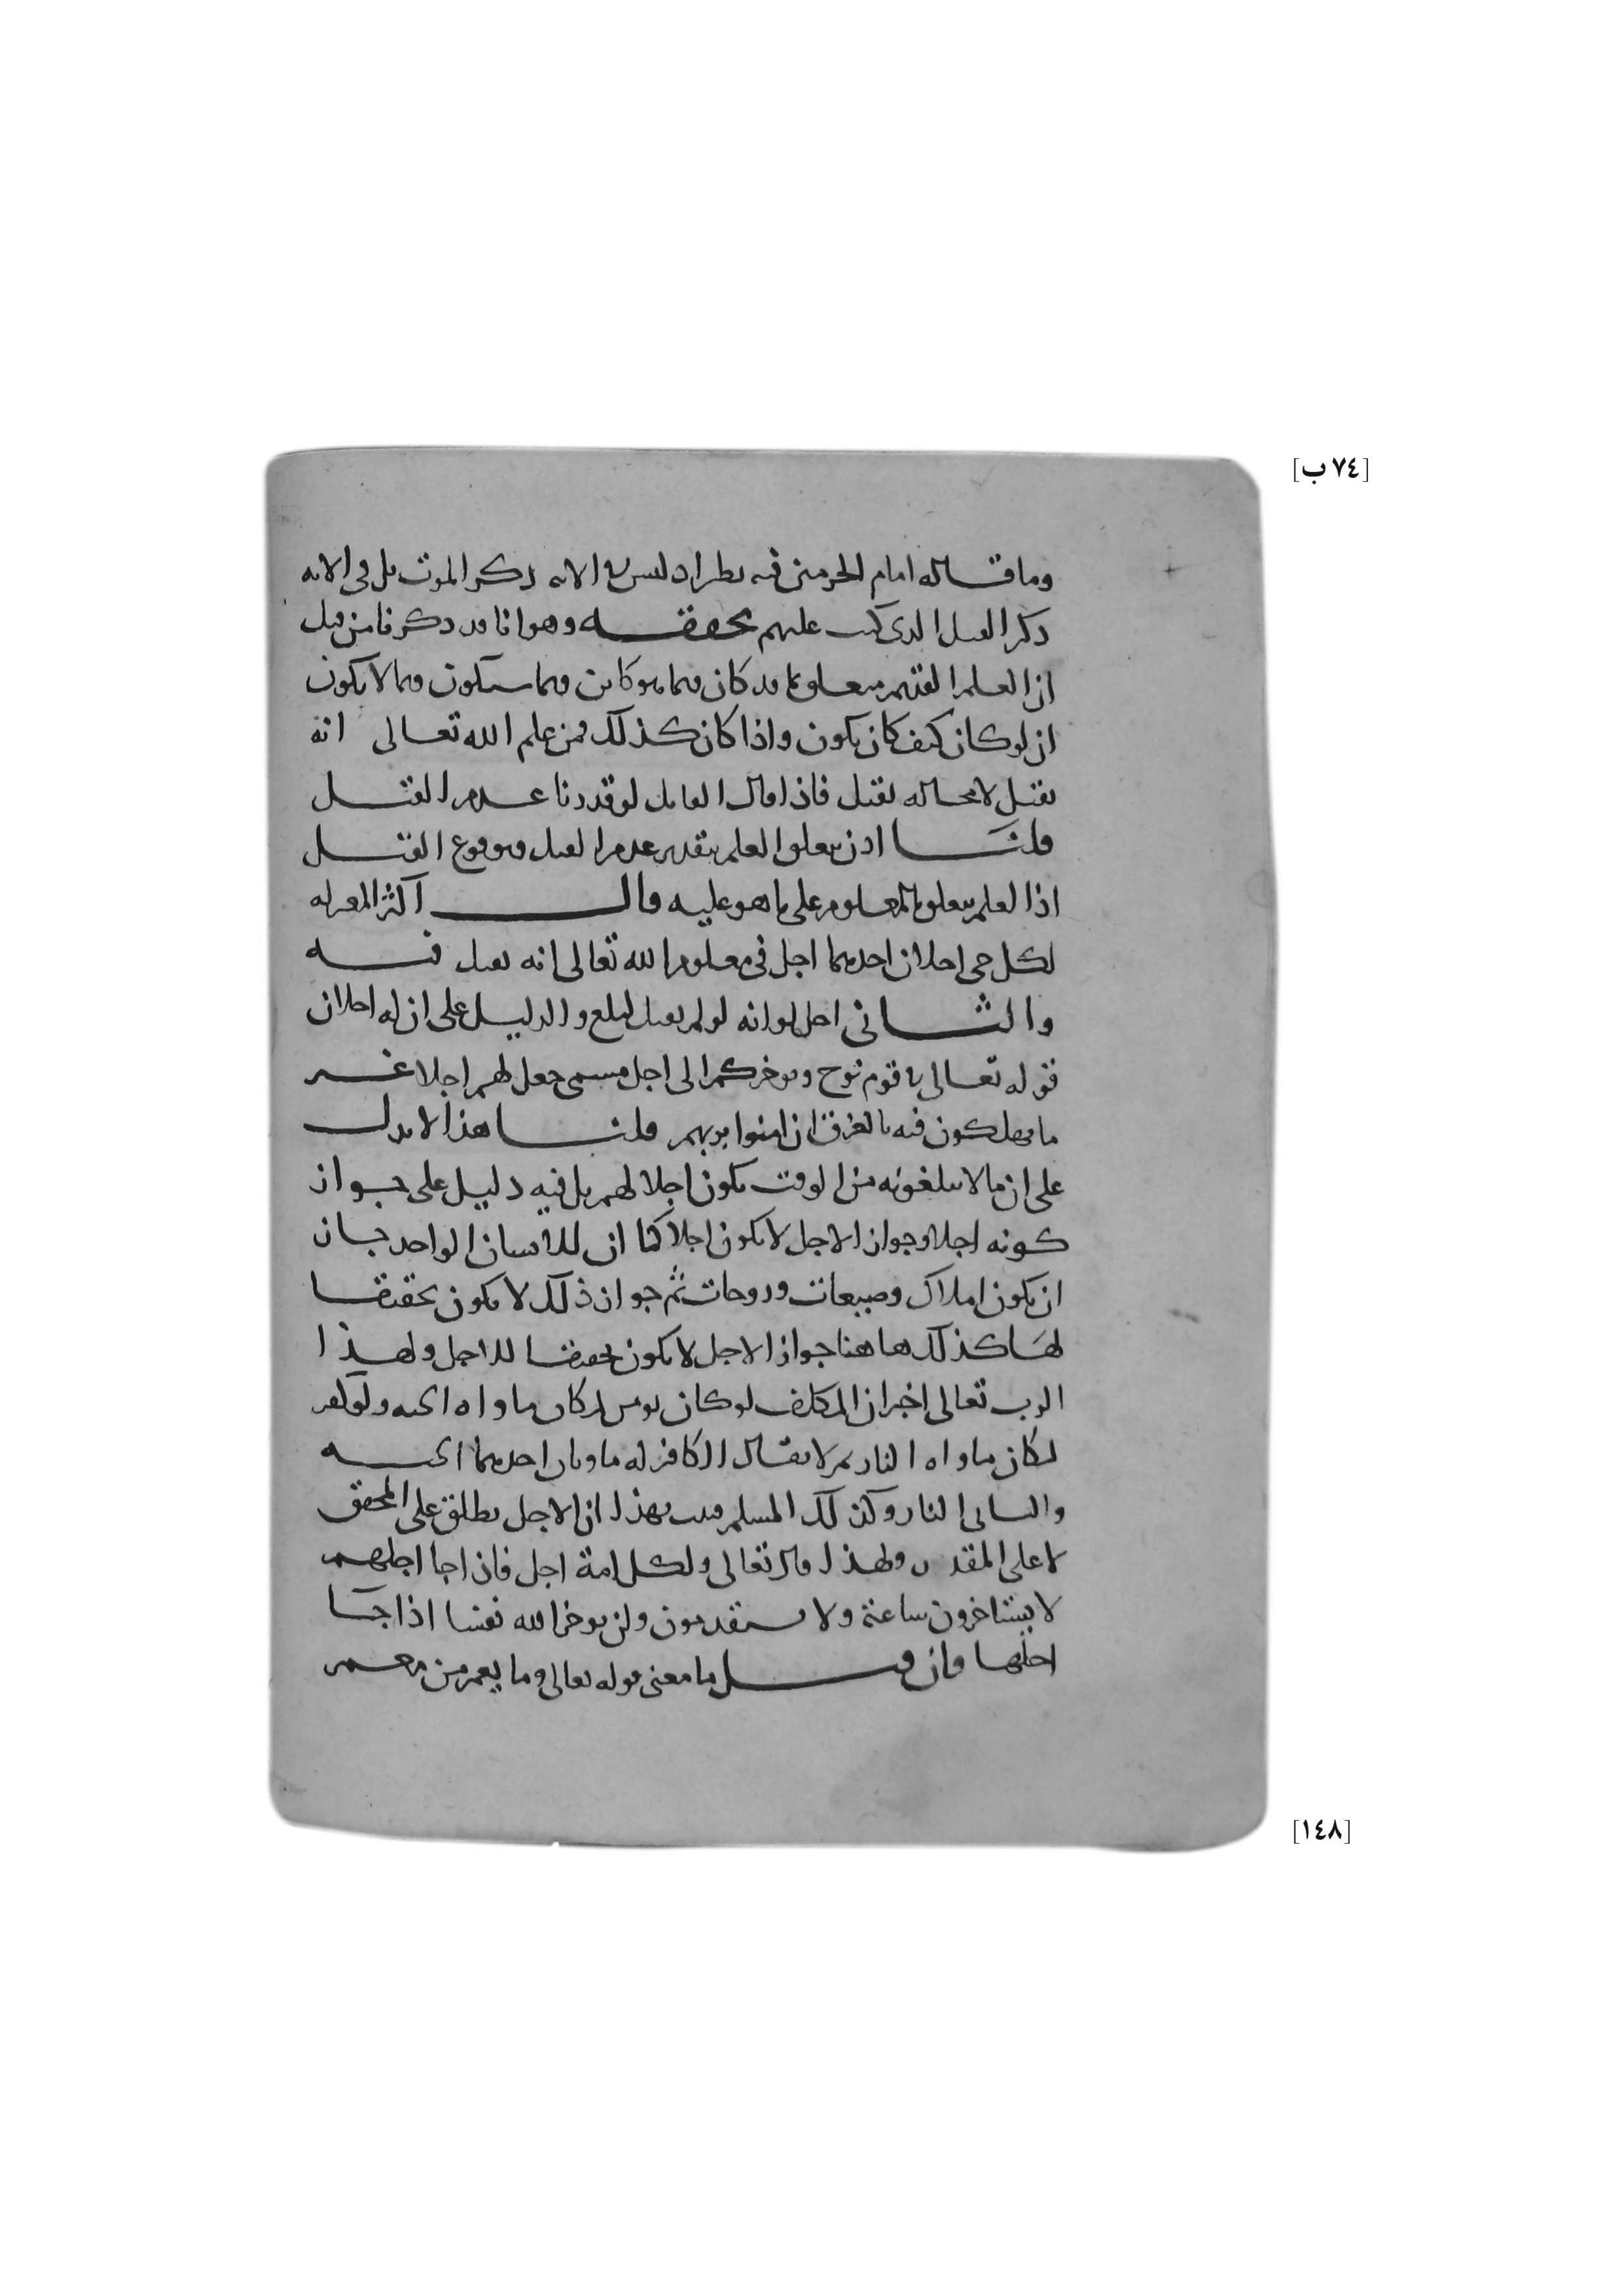 [٧٤ ب]
وما قاله امام الحرمين فيه نظر اذ ليس في الايه ذكر الموت بل في الايه
ذكر القتل الذي كتب عليهم تحققه وهو انا قد ذكرنا من قبل
ان العلم القديم متعلق بما قد كان وبما هو كاين وبما سيكون وبما لا يكون
ان لو كان كيف كان يكون واذا كان كذلك فمن علم الله تعالى انه
يقتل لا محاله يقتل فاذا قال القايل لو قدرنا عدم القتل
قلنا اذن يتعلق العلم بتقدير عدم القتل ووقوع القتل
اذا العلم يتعلق بالمعلوم على ما هو عليه قال اكثر المعتزله
لكل حي اجلان احدهما اجل في معلوم الله تعالى انه يقتل فيه
والثاني اجل لو انه لو لم يقتل لبلغ والدليل على ان له اجلان
قوله تعالى يا قوم نوح ويوخركم الى اجل مسمى جعل لهم اجلا غير
ما يهلكون فيه بالغرق ان امنوا بربهم قلنا هذا لا يدل
على ان ما لا يبلغونه من الوقت يكون اجلا لهم بل فيه دليل على جواز
كونه اجلا وجواز الاجل لا يكون اجلا كما ان للانسان الواحد جاز
ان يكون املاك وضيعات وزوجات ثم جواز ذلك لا يكون تحقيقا
لها كذلك ها هنا جواز الاجل لا يكون تحقيقا للاجل ولهذا
الرب تعالى اخبر ان المكلف لو كان يومن لكان ماواه الجنه ولو كفر
لكان ماواه النار ثم لا يقال الكافر له ماويان احدهما الجنه
والثاني النار وكذلك المسلم فثبت بهذا ان الاجل يطلق على المحقق
لا على المقدر ولهذا قال تعالى ولكل امة اجل فاذا جا اجلهم
لا يستاخرون ساعة ولا يستقدمون ولن يوخر الله نفسا اذا جا
اجلها فان قيل ما معنى قوله تعالى وما يعمر من معمر
[١٤٨]